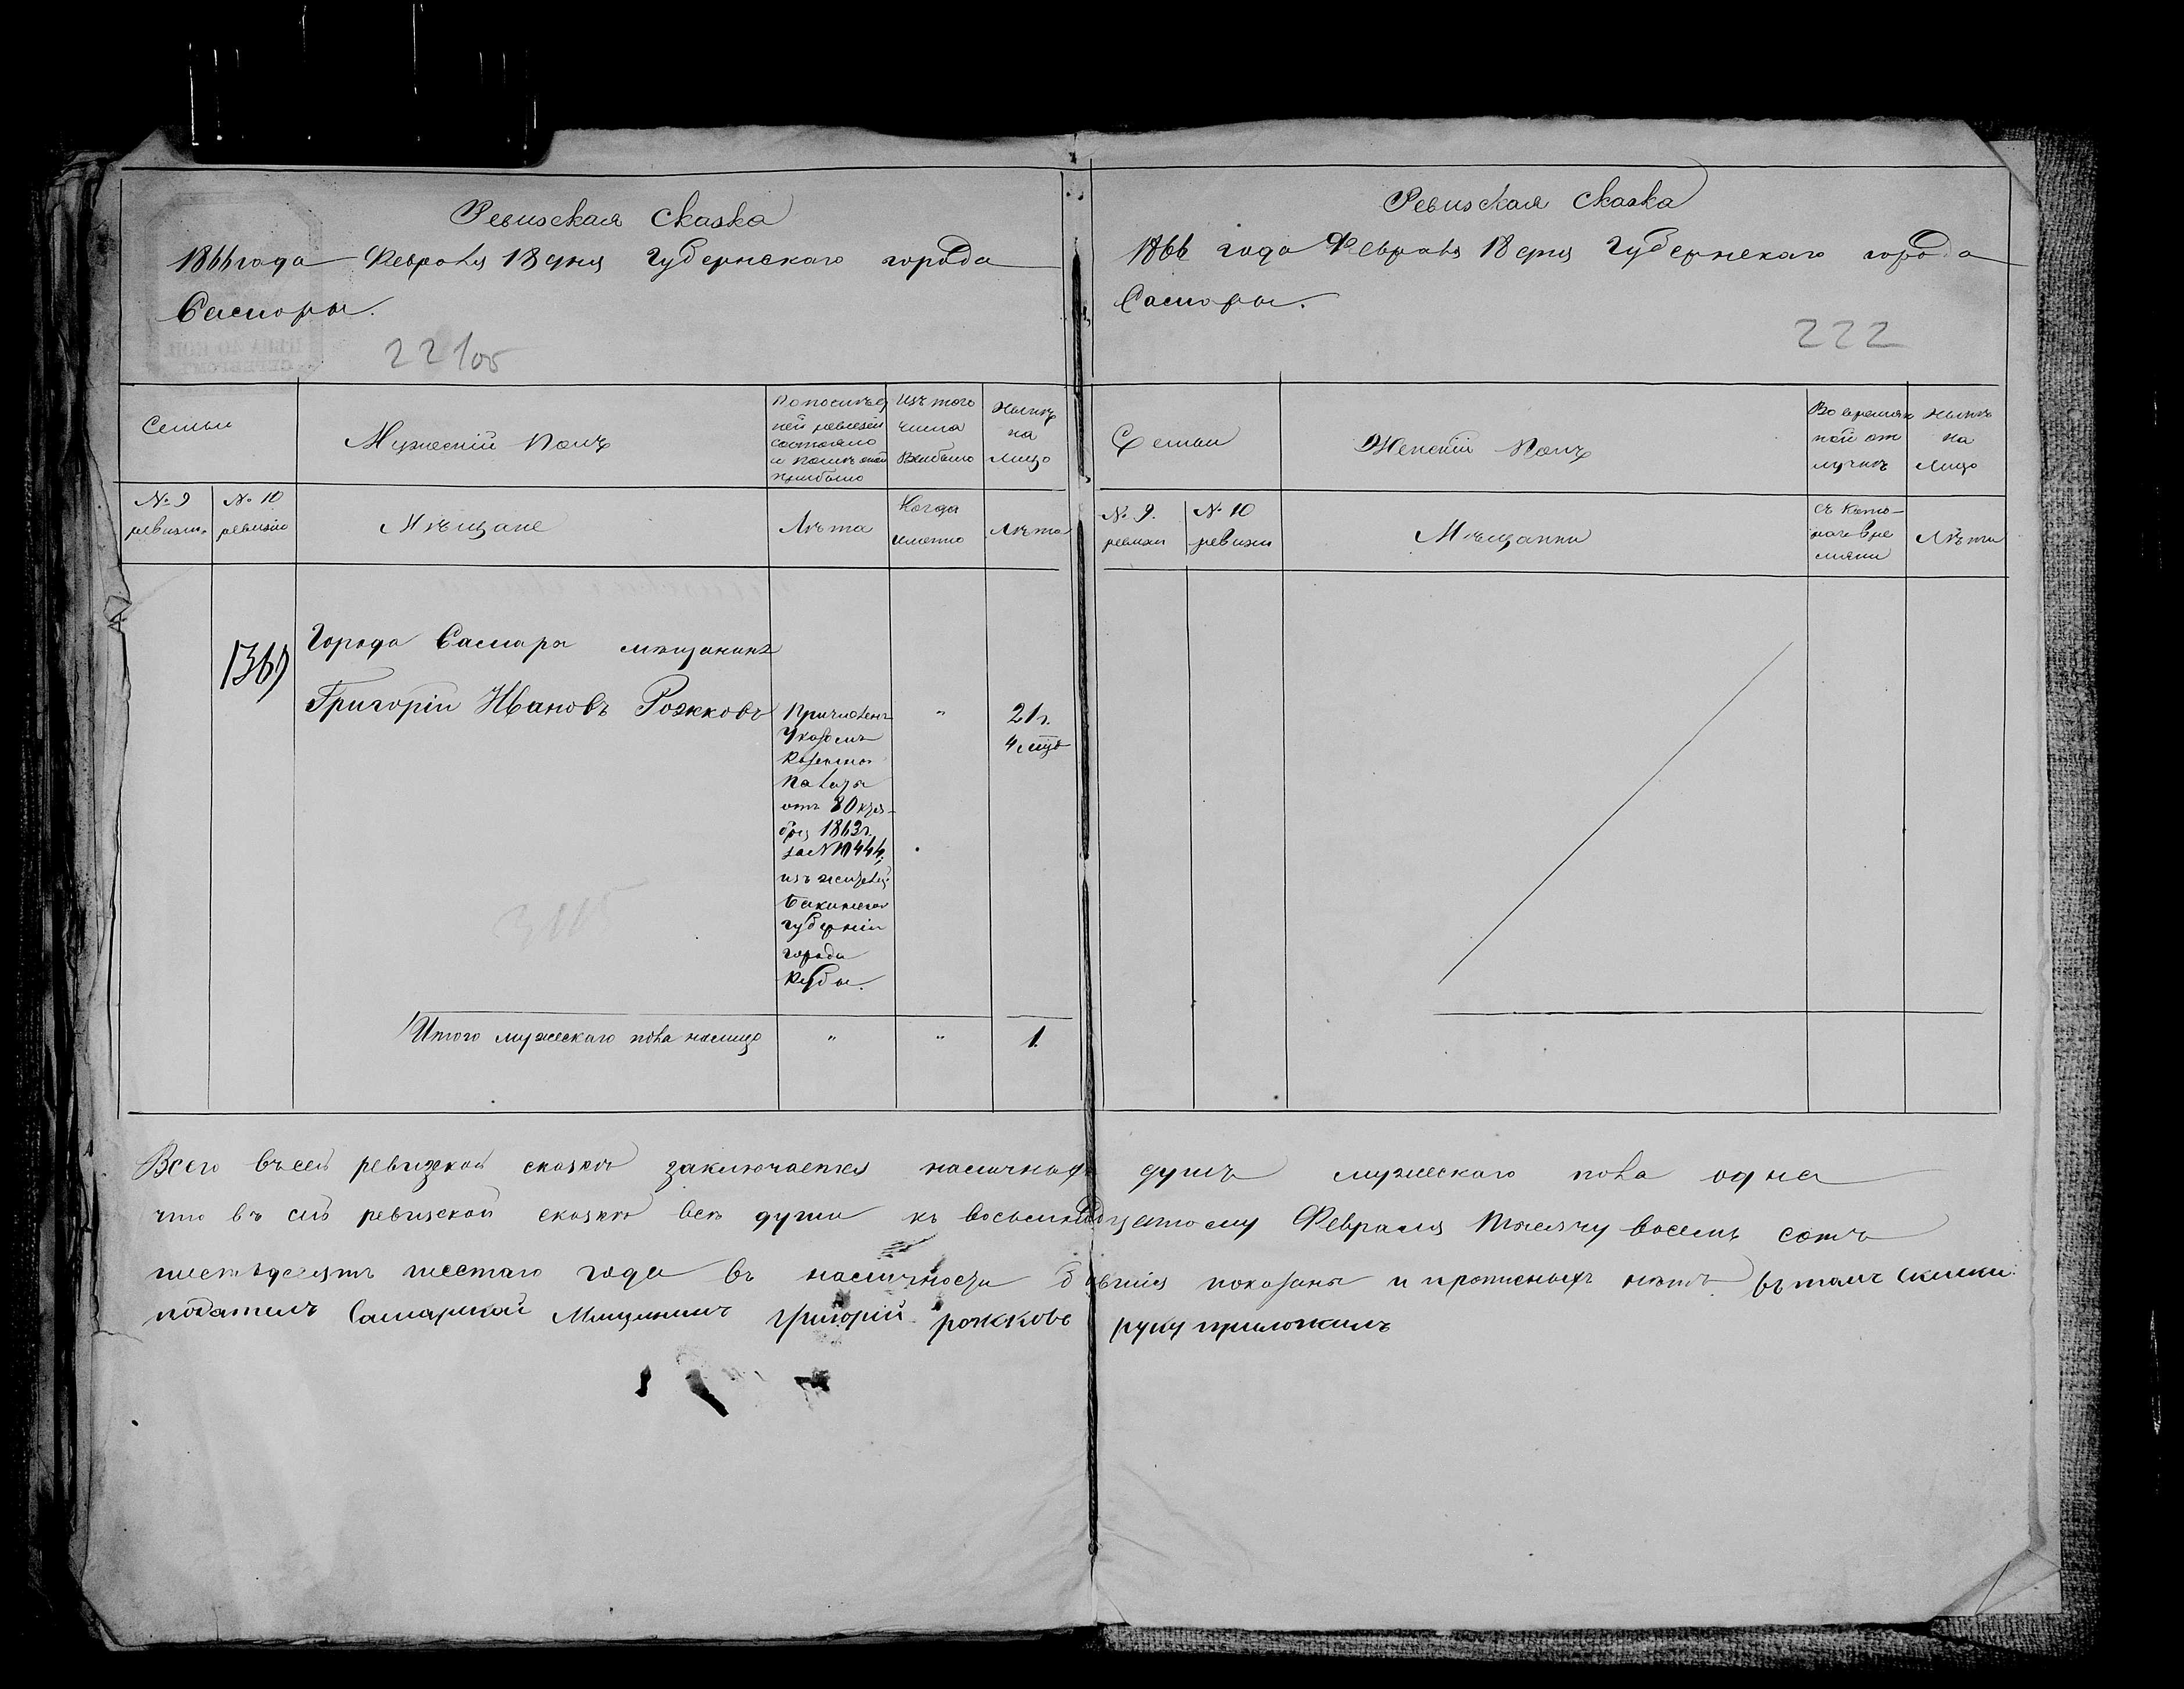 Ревизская сказка
1866 года Февраля 18 дня Губернскаго города
Самары.
221 об
Семьи
Мужескій полъ
По послѣд
ней ревизіи
состояло
и послѣ оной
прибыло
Изъ того
числа
выбыло
Нынѣ
на
лицо
№ 9
ревизіи
№ 10
ревизіи
Мѣщане
Лѣта
Когда
именно
Лѣта
1369
Города Самары мѣщанинъ
Григорій Ивановъ Рожковъ
Причисленъ
Указомъ
Казенной
Палаты
отъ 8 Октя-
бря 1863 г.
за №
изъ жителей
Бакинской
губерніи
города
Кубы.
"
21 г.
4 мѣс
Итого мужескаго пола налицо
"
"
1.
Ревизская сказка
1866 года Февраля 18 дня Губернскаго города
Самары.
222
Семьи
Женскій полъ
Во времян
ной от
лучкѣ
Нынѣ
на
лицо
№ 9.
ревизіи
№ 10
ревизіи
Мѣщанки
съ кото-
раго вре
мяни
Лѣта
Всего въ сей ревизской сказкѣ заключается наличныхъ душъ мужескаго пола одна
что въ сей ревизской сказкѣ всѣ души къ восемнадцатому Февраля тысячу восемь сотъ
шестьдесятъ шестаго года въ наличности бывшія показаны и прописныхъ нѣтъ. въ томъ скаски
податель Самарской Мещининъ григорій рожковъ руку приложилъ